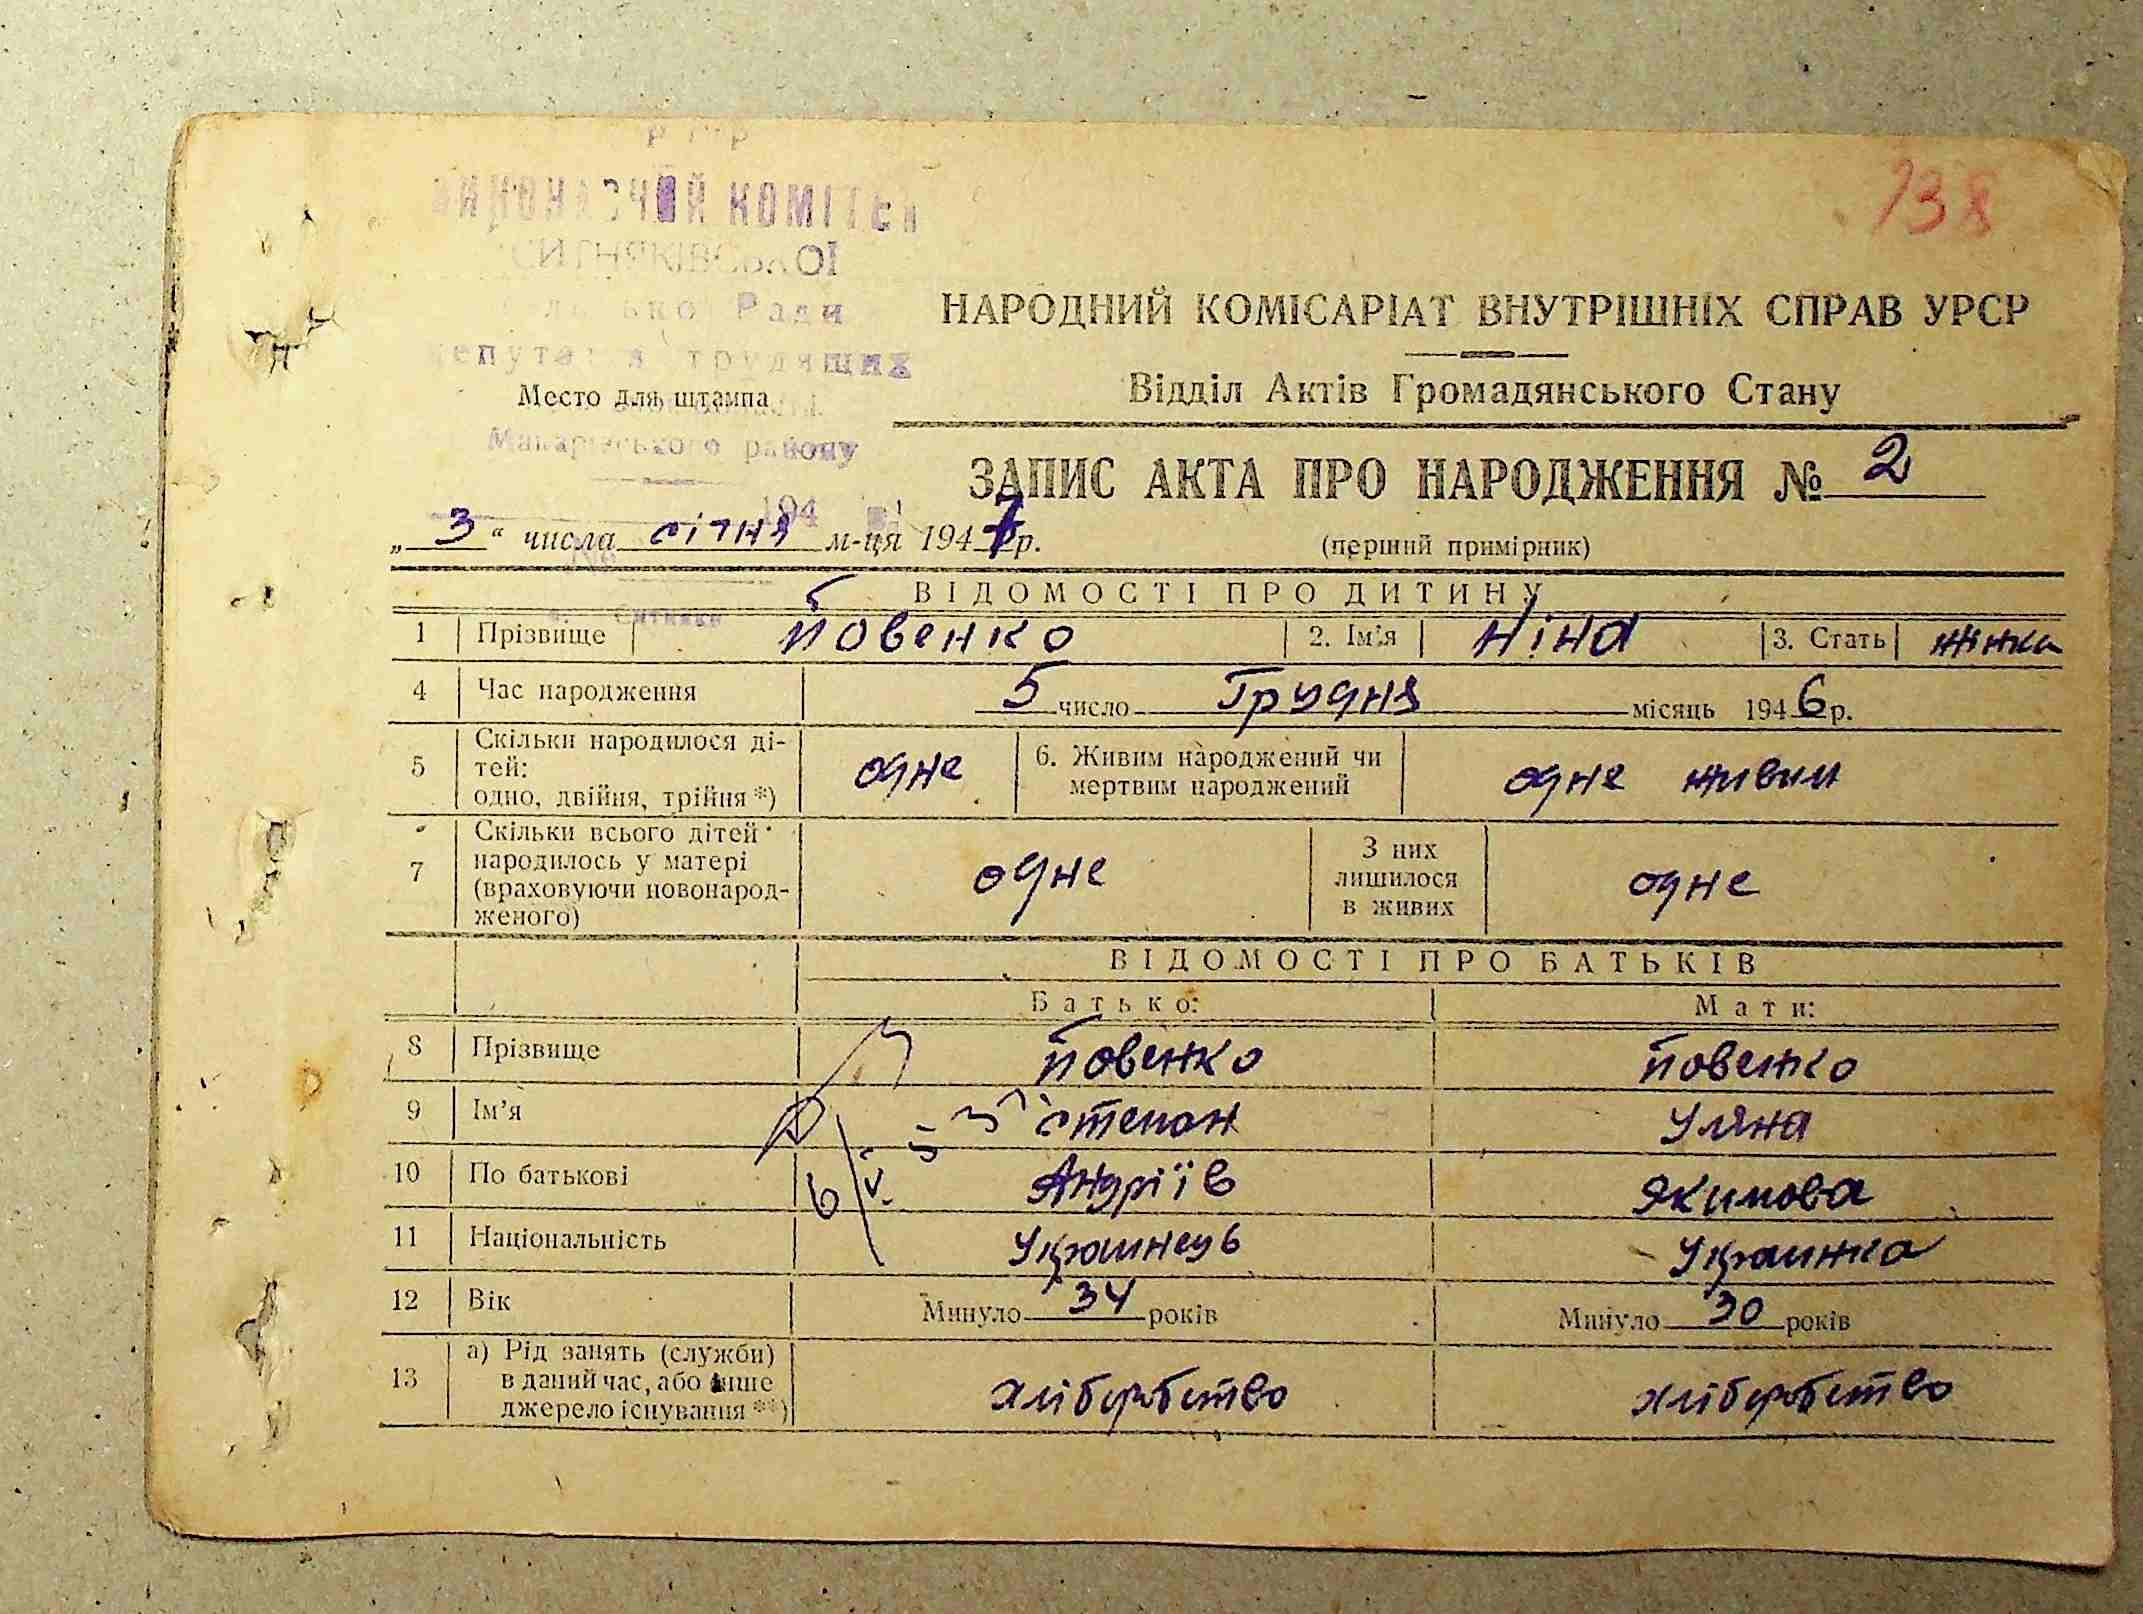 138
КОМІТЕ
СИТНЯКІВСЬКОЇ
Ради
трудящих
Место для штампа
Макарівського району
194
НАРОДНИЙ КОМІСАРІАТ ВНУТРІШНІХ СПРАВ УРСР
Відділ Актів Громадянського Стану
ЗАПИС АКТА ПРО НАРОДЖЕННЯ № 2
„3“ числа січня м-ця 1947 р.
(перший примірник)
ВІДОМОСТІ ПРО ДИТИНУ
с. Ситняки
1 Прізвище Бовенко 2. Ім'я Ніна 3. Стать жінка
4 Час народження 5 число Грудня місяць 1946 р.
5 Скільки народилося ді-
тей:
одно, двійня, трійня *) одне 6. Живим народжений чи
мертвим народжений одне живим
7 Скільки всього дітей
народилось у матері
(враховуючи новонарод-
женого) одне З них
лишилося
в живих одне
ВІДОМОСТІ ПРО БАТЬКІВ
Батько: Мати:
8 Прізвище Бовенко Бовенко
9 Ім'я Степан Уляна
10 По батькові Андріїв Якимова
11 Національність Українець Українка
12 Вік Минуло 34 років Минуло 30 років
13 а) Рід занять (служби)
в даний час, або інше
джерело існування **) хліборобство хліборобство